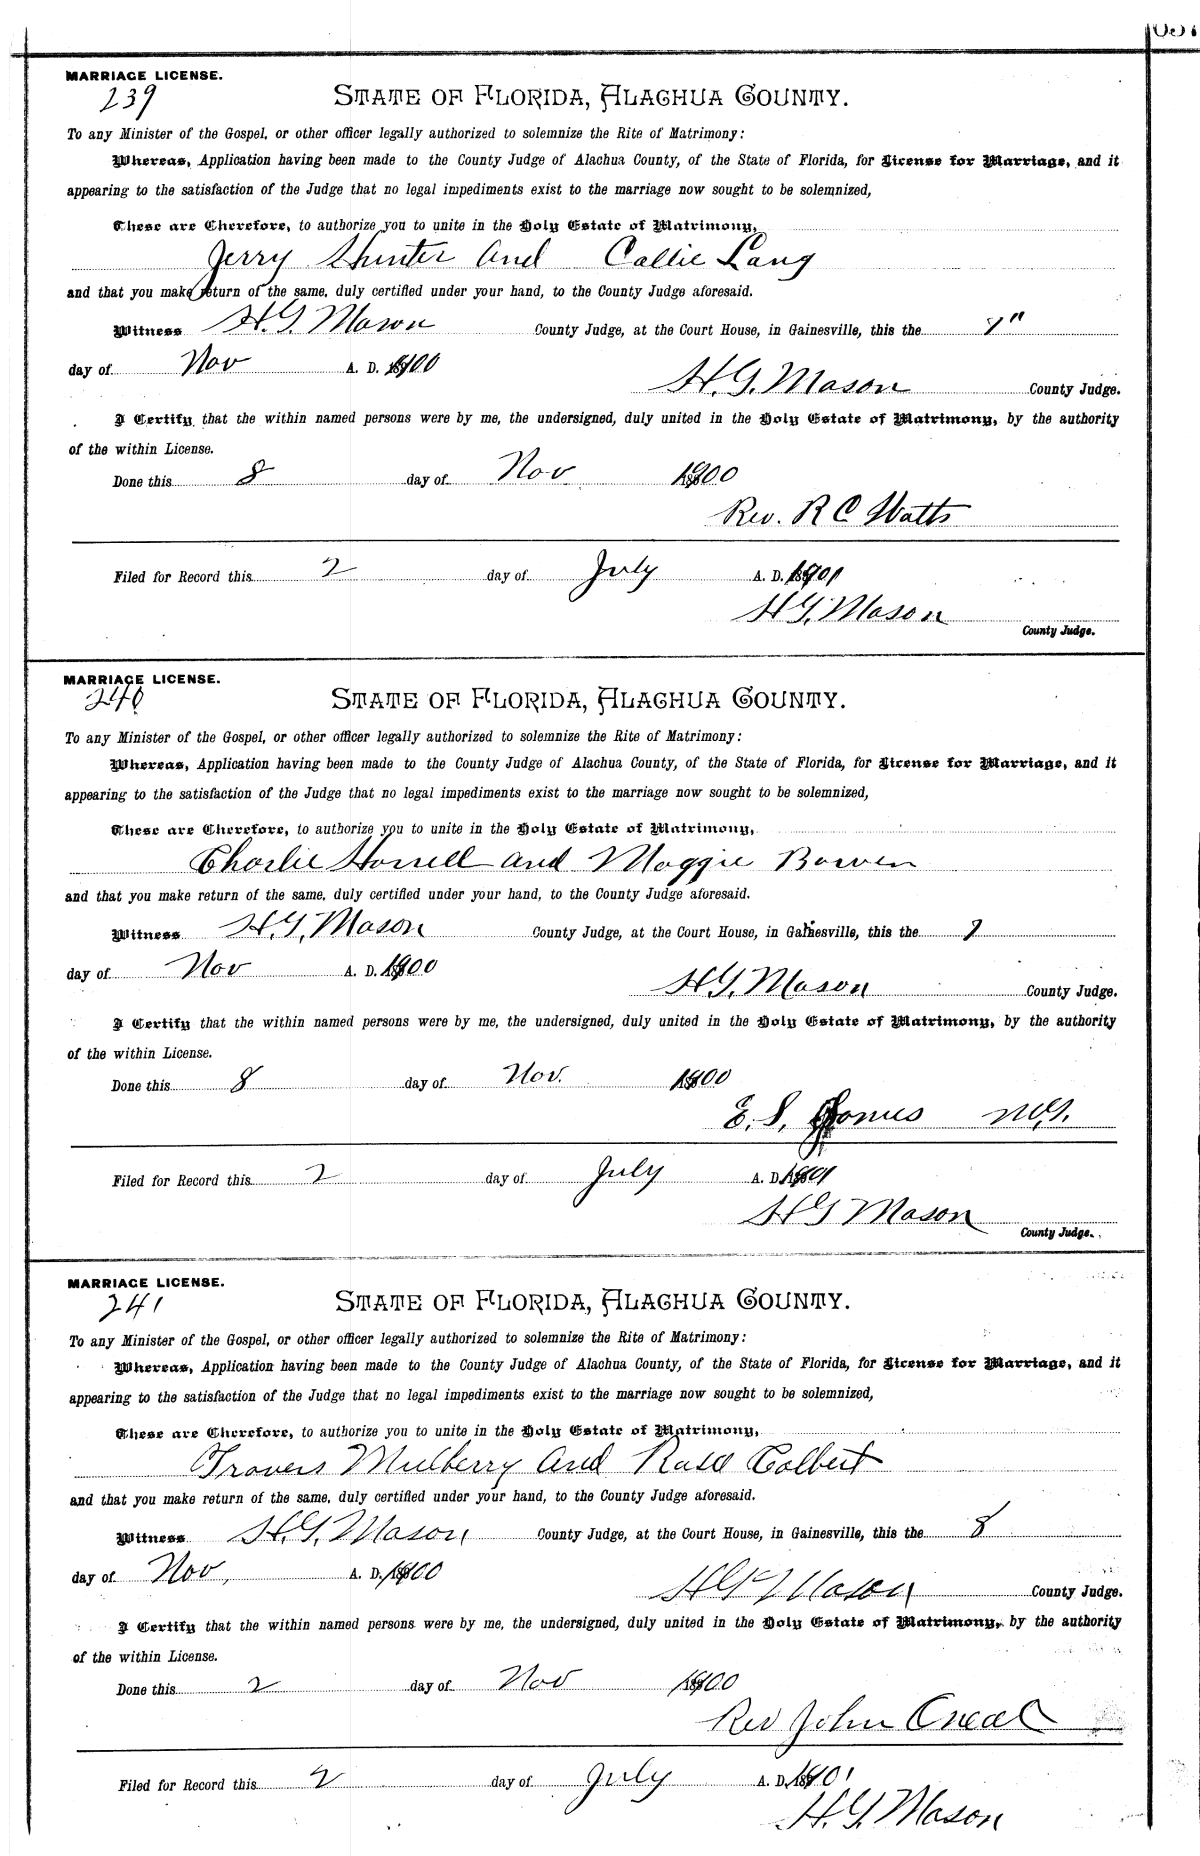 MARRIAGE LICENSE.
239
STATE OF FLORIDA, ALACHUA COUNTY.
To any Minister of the Gospel, or other officer legally authorized to solemnize the Rite of Matrimony:
Whereas, Application having been made to the County Judge of Alachua County, of the State of Florida, for License for Marriage, and it
appearing to the satisfaction of the Judge that no legal impediments exist to the marriage now sought to be solemnized,
These are Therefore, to authorize you to unite in the Holy Estate of Matrimony,
Jerry Hunter and Callie Lang
and that you make return of the same, duly certified under your hand, to the County Judge aforesaid.
Witness H.G. Mason County Judge, at the Court House, in Gainesville, this the 7"
day of Nov A. D. 1900
H.G. Mason County Judge.
I Certify, that the within named persons were by me, the undersigned, duly united in the Holy Estate of Matrimony, by the authority
of the within License.
Done this 8 day of Nov 1900
Rev. R C Watts
Filed for Record this 2 day of July A. D. 1901
H G, Mason
County Judge.
MARRIAGE LICENSE.
240
STATE OF FLORIDA, ALACHUA COUNTY.
To any Minister of the Gospel, or other officer legally authorized to solemnize the Rite of Matrimony:
Whereas, Application having been made to the County Judge of Alachua County, of the State of Florida, for License for Marriage, and it
appearing to the satisfaction of the Judge that no legal impediments exist to the marriage now sought to be solemnized,
These are Therefore, to authorize you to unite in the Holy Estate of Matrimony,
Charlie Horrell and Maggie Bowen
and that you make return of the same, duly certified under your hand, to the County Judge aforesaid.
Witness H.G, Mason County Judge, at the Court House, in Gainesville, this the 7
day of Nov A. D. 1900
H G, Mason County Judge.
I Certify that the within named persons were by me, the undersigned, duly united in the Holy Estate of Matrimony, by the authority
of the within License.
Done this 8 day of Nov. 1900
E. S. Jones M.G.
Filed for Record this 2 day of July A. D. 1901
H G Mason
County Judge.
MARRIAGE LICENSE.
241
STATE OF FLORIDA, ALACHUA COUNTY.
To any Minister of the Gospel, or other officer legally authorized to solemnize the Rite of Matrimony:
Whereas, Application having been made to the County Judge of Alachua County, of the State of Florida, for License for Marriage, and it
appearing to the satisfaction of the Judge that no legal impediments exist to the marriage now sought to be solemnized,
These are Therefore, to authorize you to unite in the Holy Estate of Matrimony,
Travers Mulberry and Rosa Colbert
and that you make return of the same, duly certified under your hand, to the County Judge aforesaid.
Witness H.G, Mason County Judge, at the Court House, in Gainesville, this the 8
day of Nov, A. D. 1900
H G Mason County Judge.
I Certify that the within named persons were by me, the undersigned, duly united in the Holy Estate of Matrimony, by the authority
of the within License.
Done this 2 day of Nov 1900
Rev John Oneal
Filed for Record this 2 day of July A. D. 1901
H. G. Mason